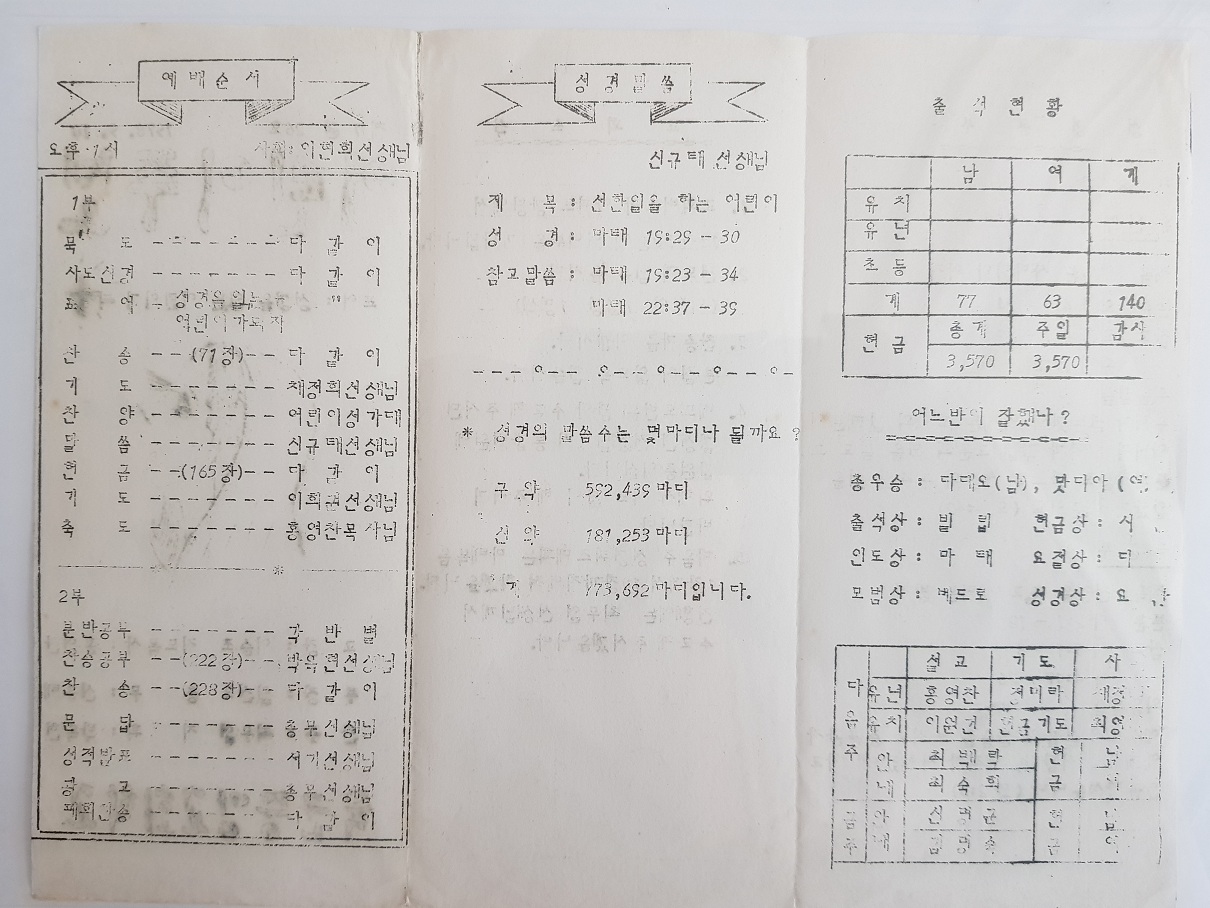 예배순서
오후·1시 사회: 이현희선생님
1부
묵 도 다 같 이
사도신경 다 같 이
표 어 성경을읽는 "
어린이가되자
찬 송 --(71장)-- 다 같 이
기 도 채정희선생님
찬 양 어린이성가대
말 씀 신규태선생님
헌 금 --(165장)-- 다 같 이
기 도 이희권선생님
축 도 홍영찬목사님
*
2부
분반공부 각 반 별
찬송공부 --(222장)-- 박옥현선생님
찬 송 --(228장)-- 다 같 이
문 답 총무선생님
성적발표 서기선생님
광 고 총무선생님
폐회찬송 다 같 이
성경말씀
신규태 선생님
제 목 : 선한일을 하는 어린이
성 경 : 마태 19:29 - 30
참고말씀 : 마태 19:23 - 34
마태 22:37 - 39
* 성경의 말씀수는 몇마디나 될까요 ?
구 약 592,439마디
신 약 181,253마디
계 773,692마디입니다.
출 석 현 황
남 여 계
유 치
유 년
초 등
계 77 63 140
헌 금 총계 주일 감사
3,570 3,570
어느반이 잘했나 ?
총우승 : 다대오(남), 맛디아 (여)
출석상 : 빌 립 헌금상 : 시
인도상 : 마 태 요절상 : 디
모범상 : 베드로 성경상 : 요 한
설 교 기 도 사
다음주 유년 홍영찬 정미라 채정
유치 이원건 헌금기도 최영
안내 최 백 락 헌금 남
최 숙 희
금주 안내 헌금 남
여